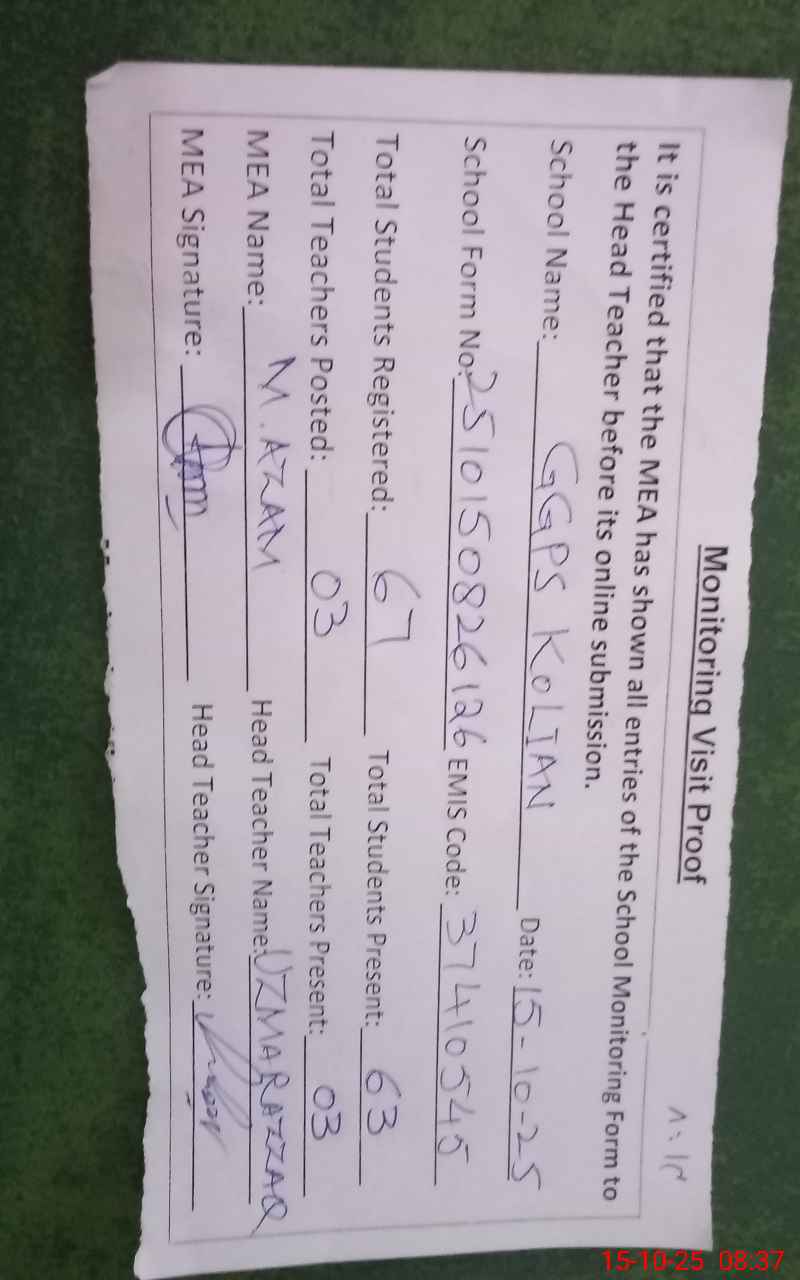 Monitoring Visit Proof
It is certified that the MEA has shown all entries of the School Monitoring Form to
the Head Teacher before its online submission.
School Name: GGPS KOLIAN Date: 15-10-25
School Form No: 2510150826126 EMIS Code: 37410545
Total Students Registered: 67 Total Students Present: 63
Total Teachers Posted: 03 Total Teachers Present: 03
MEA Name: M. AZAM Head Teacher Name: UZMA RAZZAQ
MEA Signature: Head Teacher Signature:
15-10-25 08:37